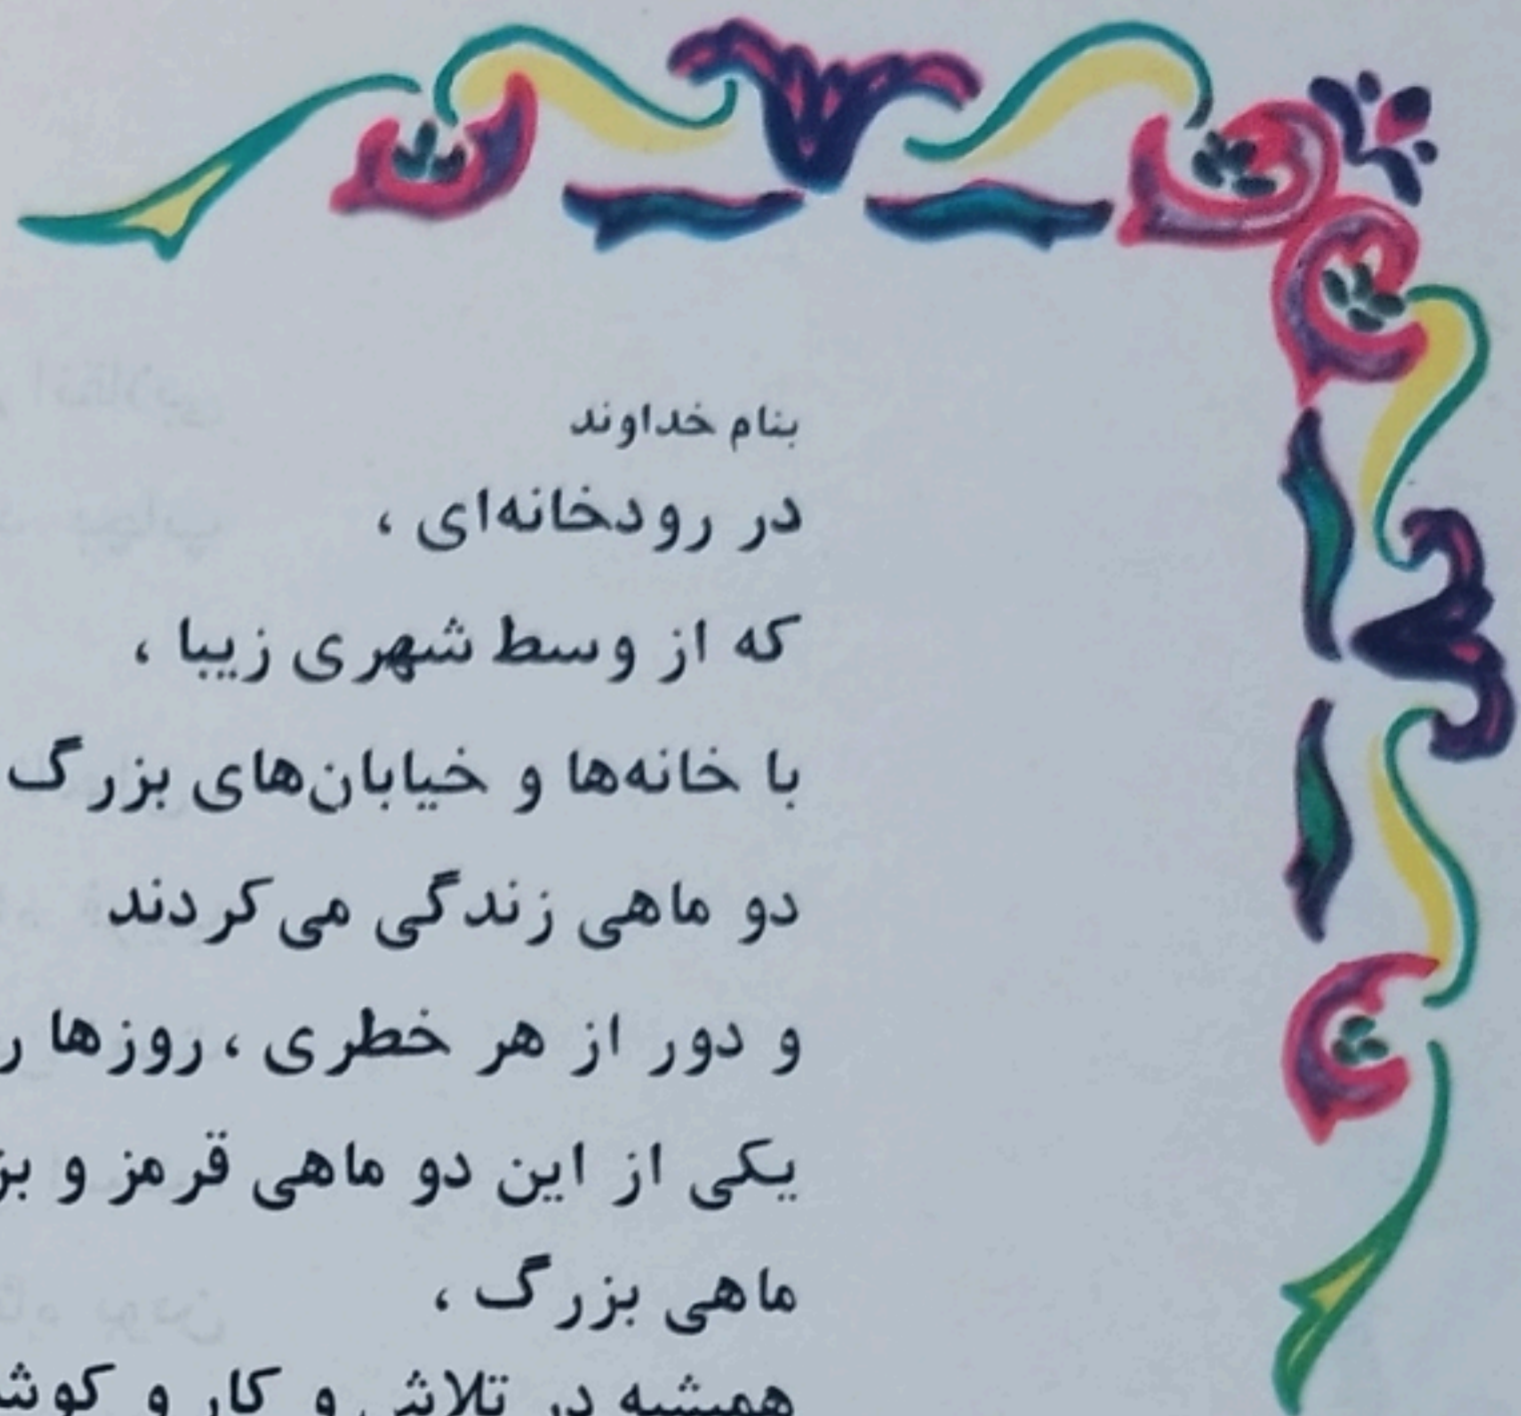 بنام خداوند
در رودخانه‌ای ،
که از وسط شهری زیبا ،
با خانه‌ها و خیابان‌های بزرگ
دو ماهی زندگی می‌کردند
و دور از هر خطری ، روزها
یکی از این دو ماهی قرمز و
ماهی بزرگ ،
همیشه در تلاش و کار و